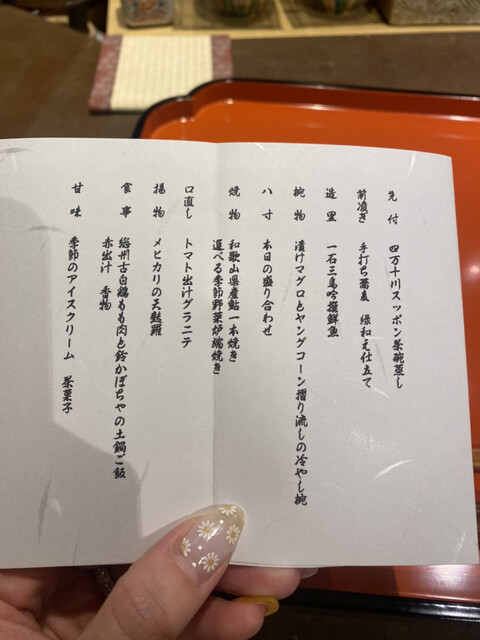 先付 四万十川スッポン茶碗蒸し
前凌ぎ 手打ち蕎麦 緑和え仕立て
造里 一石三鳥吟撰鮮魚
椀物 漬けマグロとヤングコーン摺り流しの冷やし椀
八寸 本日の盛り合わせ
焼物 和歌山県産鮎一本焼き
選べる季節野菜炉端焼き
口直し トマト出汁グラニテ
揚物 メヒカリの天麩羅
食事 紀州古白鶏もも肉と鈴かぼちゃの土鍋ご飯
赤出汁 香物
甘味 季節のアイスクリーム 茶菓子